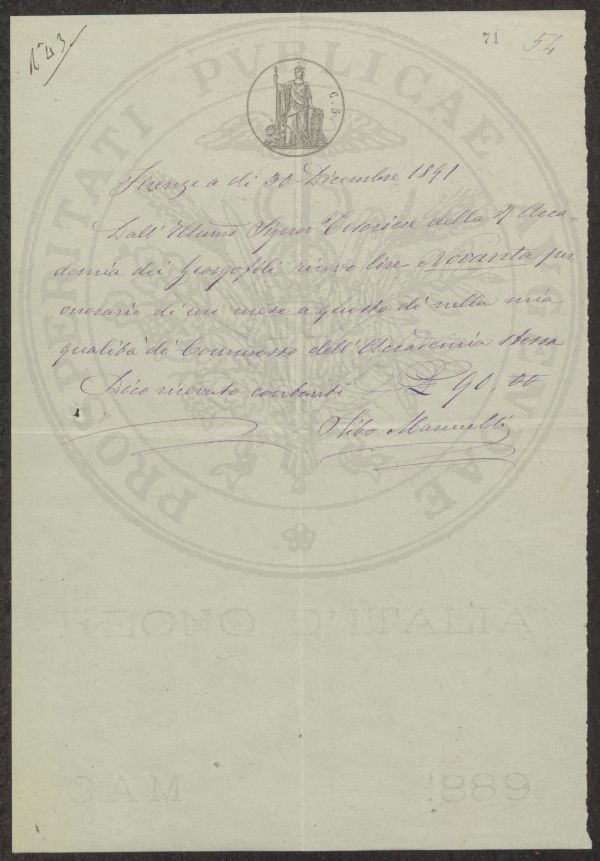 N° 43
71
54
PROSPERITATI PVBLICAE AVGENDAE
Firenze a dì 30 Dicembre 1891
Dall' Illumo Signor Tesoriere della R Acca-
demia dei Georgofili ricevo lire Novanta per
onorario di un mese a questo dì nella mia
qualità di Commesso dell' Accademia stessa
Dico ricevuto contanti £ 90,00